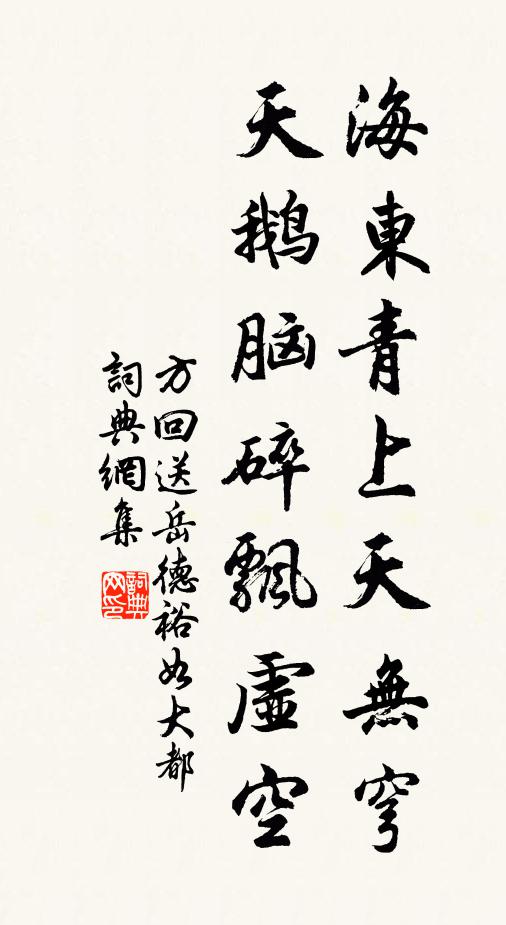 海東青上天無穹
天鹅脑碎飄虛空
方回送岳德裕如大都
詞典網集
詞典网印